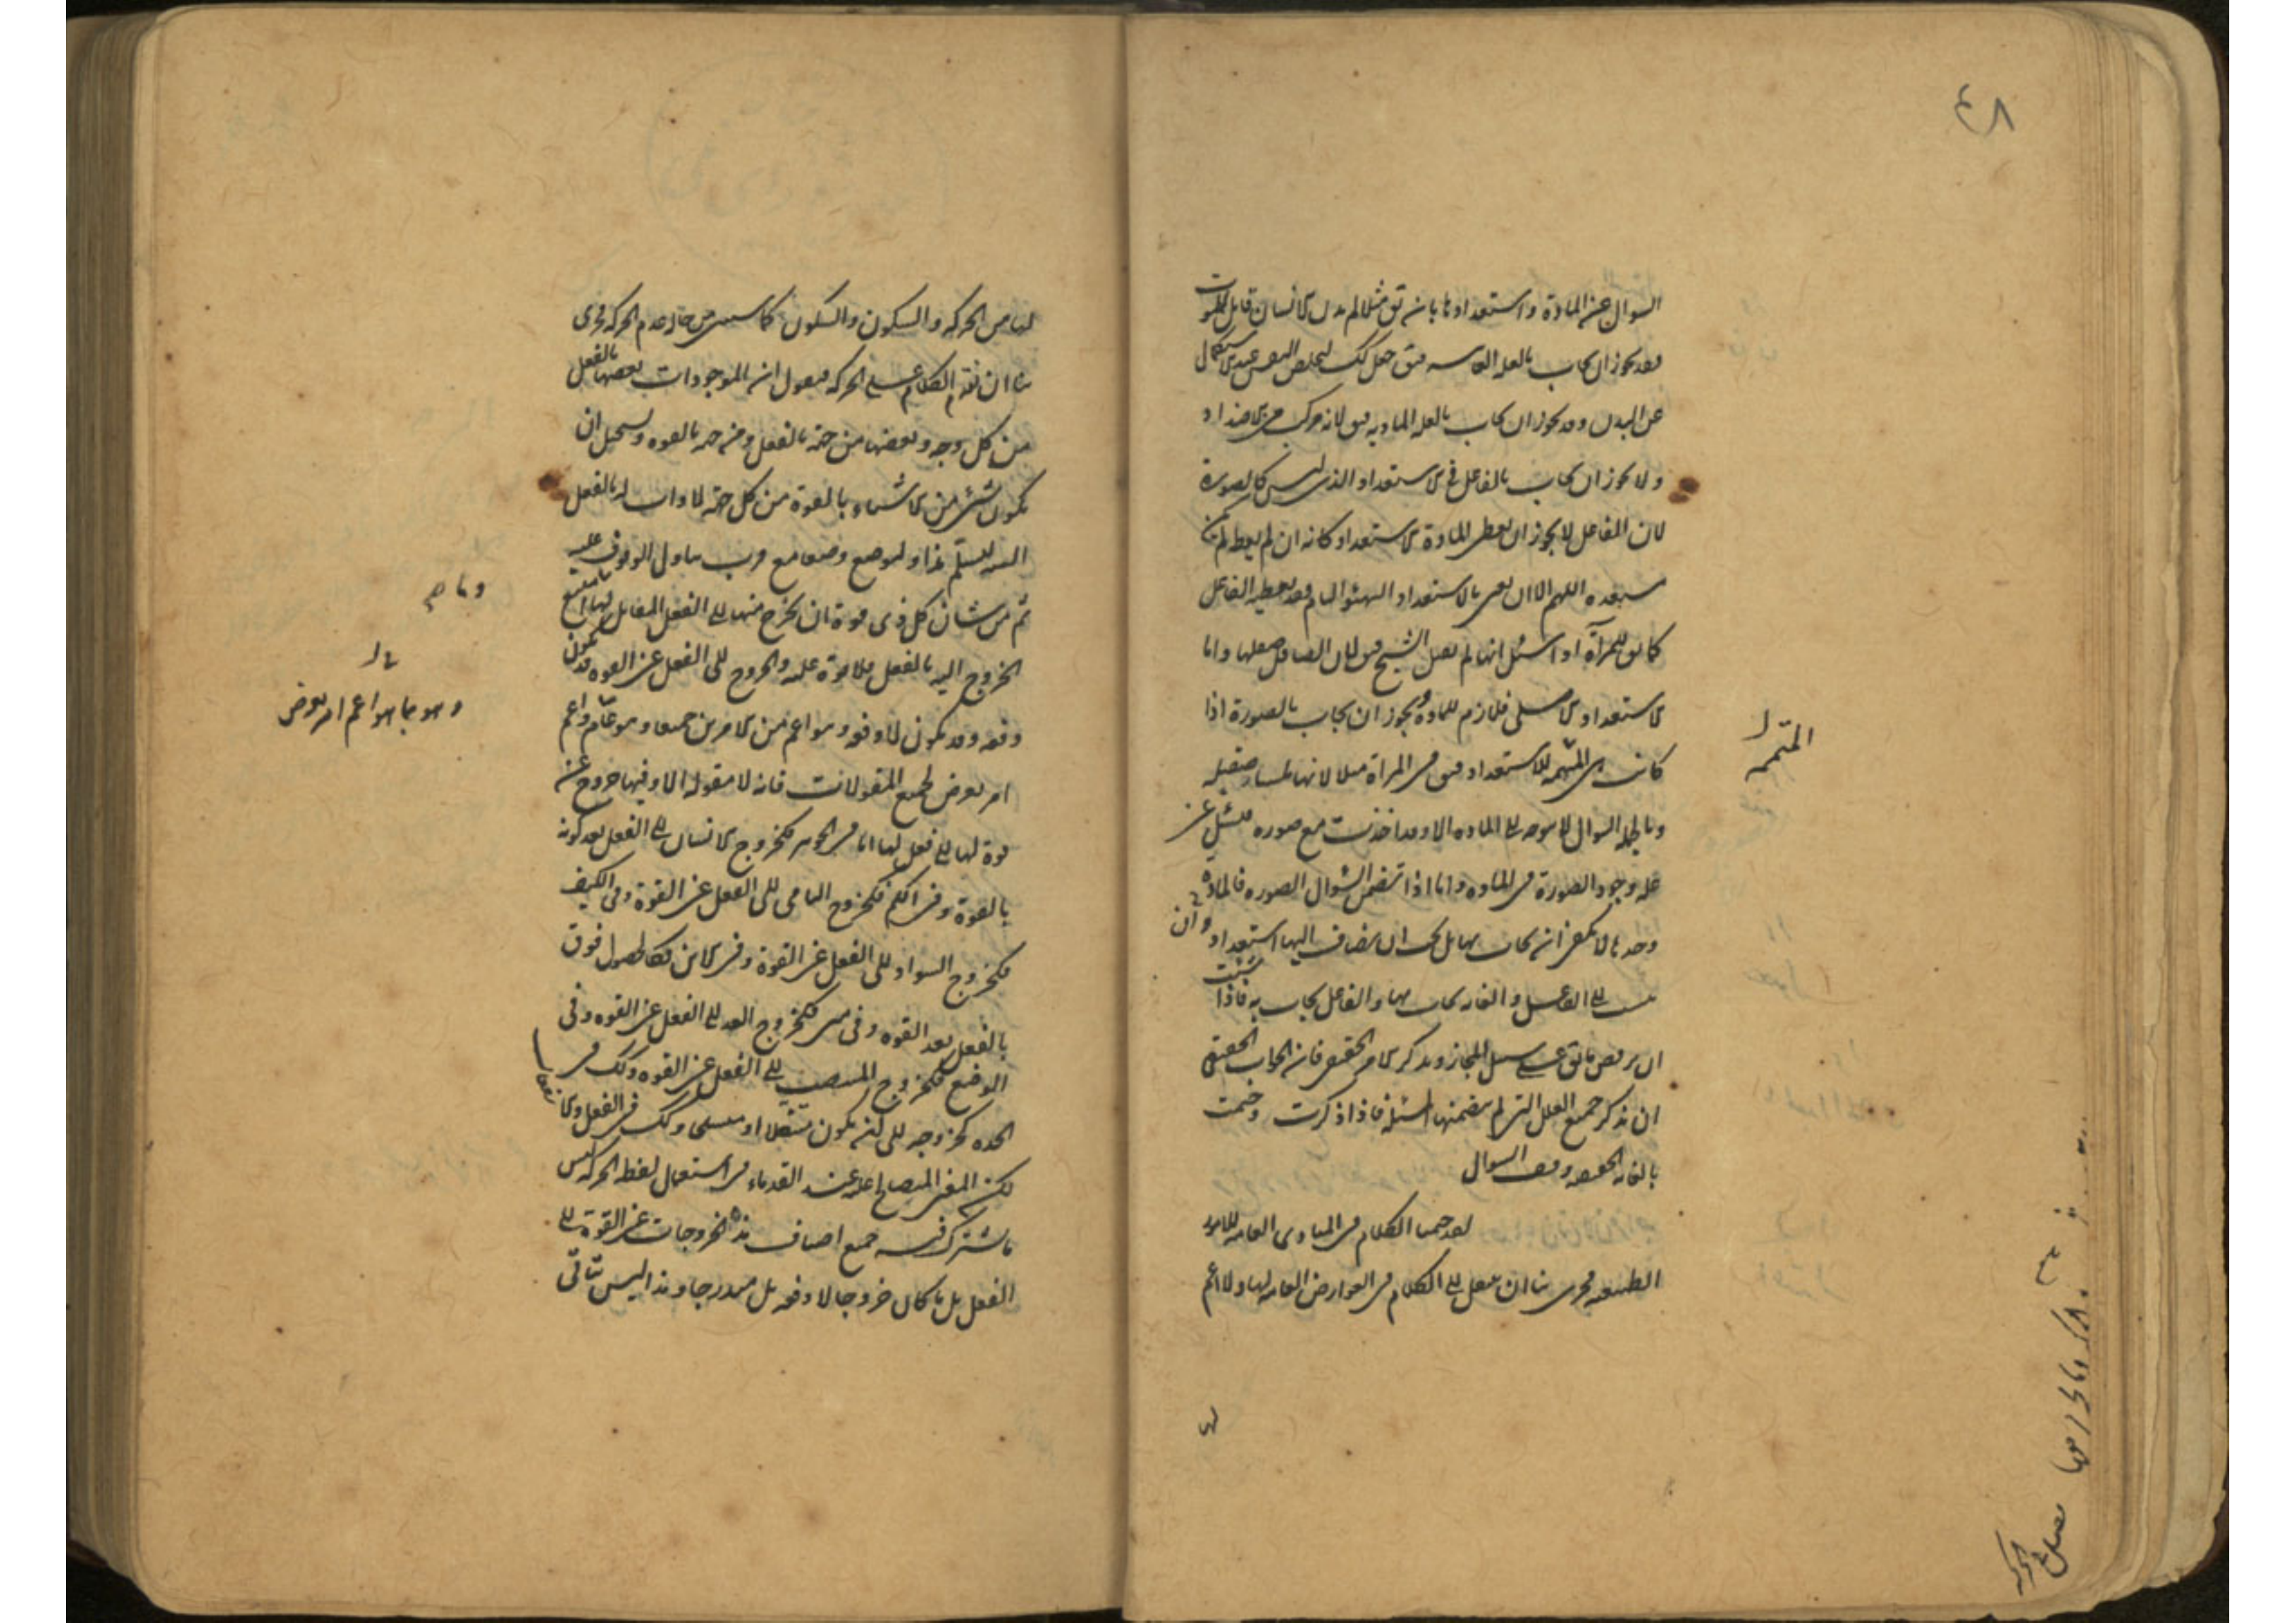 ٤٨
السوال عن المادة و استعدادها بان يق مثلا لم بدن الانسان قابل للموت
فقد يجوز ان يجاب بالعله الغاسه فيق جعل كك ليتخلص النفس عند الاستكمال
عن البدن وقد يجوز ان يجاب بالعله الماديه فيق لانه مركب من الاضداد
ولا يجوز ان يجاب بالفاعل في الاستعداد الذى ليس كالصورة
لان الفاعل لا يجوز ان يعطى المادة الاستعداد كانه ان لم يعط لم يكن
مستعده اللهم الا ان يعنى بالاستعداد التهيئو التام فقد يعطيه الفاعل
كما يق للمرآة اذا سئل انها لم تقبل الشبح فيق لان الصاقل صقلها واما
الاستعداد الاصلى فلازم للمادة ويجوز ان يجاب بالصورة اذا
كانت هى المتممه للاستعداد فيق فى المرآة مثلا لانها ملساء صقيله
وبالجمله السوال لا يتوجه الى الماده الا وقد اخذت مع صوره فيسئل عن
عله وجود الصورة فى الماده واما اذا تضمن السوال الصوره فالمادة
وحدها لا يكفى ان يجاب بها بل يجب ان يضاف اليها استعداد وان
ينسب الى الفاعل والغايه يجاب بها والفاعل يجاب به فاذا شئت
ان يرفض ما يق على سبيل المجاز ويذكر الامر الحقيقى فان الجواب الحقيقى
ان يذكر جميع العلل التى لم يتضمنها المسئله فاذا ذكرت وختمت
بالغايه الحقيقيه وقف السوال
لقد ختمنا الكلام فى المبادى العامه للامور
الطبيعيه فحرى بنا ان ننتقل الى الكلام فى العوارض العامه لها ولا اعم
لها
المتممه
لها من الحركه والسكون والسكون كما سنبين من حاله عدم الحركه فحرى
بنا ان نقدم الكلام على الحركه فنقول ان الموجودات بعضها بالفعل
من كل وجه وبعضها من جهة بالفعل ومن جهه بالقوه ويستحيل ان
يكون شىء من الاشياء بالقوة من كل جهة لا ذات له بالفعل
البته ليسلم هذا وليوضع وضعا مع قرب تناول الوقوف عليه
ثم من شان كل ذى قوة ان يخرج منها الى الفعل المقابل لها وما امتنع
الخروج اليه بالفعل فلا قوة عليه والخروج الى الفعل عن القوه قد يكون
دفعه وقد يكون لا دفعه وهو اعم من الامرين جميعا وهو عام واعم
امر يعرض لجميع المقولات فانه لا مقوله الا وفيها خروج عن
قوة لها الى فعل لها اما فى الجوهر فكخروج الانسان الى الفعل بعد كونه
بالقوة وفى الكم فكخروج النامى الى الفعل عن القوة وفى الكيف
فكخروج السواد الى الفعل عن القوة وفى الاين فكالحصول فوق
بالفعل بعد القوه وفى متى فكخروج الغد الى الفعل عن القوه وفى
الوضع فكخروج المنتصب الى الفعل عن القوه وكك فى
الجده كخروجه الى ان يكون متنعلا او متسلحا وكك فى الفعل والانفعال
لكن المعنى المتصالح عليه عند القدماء فى استعمال لفظ الحركه ليس
ما يشترك فيه جميع اصناف هذه الخروجات عن القوة الى
الفعل بل ما كان خروجا لا دفعه بل متدرجا وهذا ليس يتاتى
وما ص
وهو بما هو اعم امر يعرض